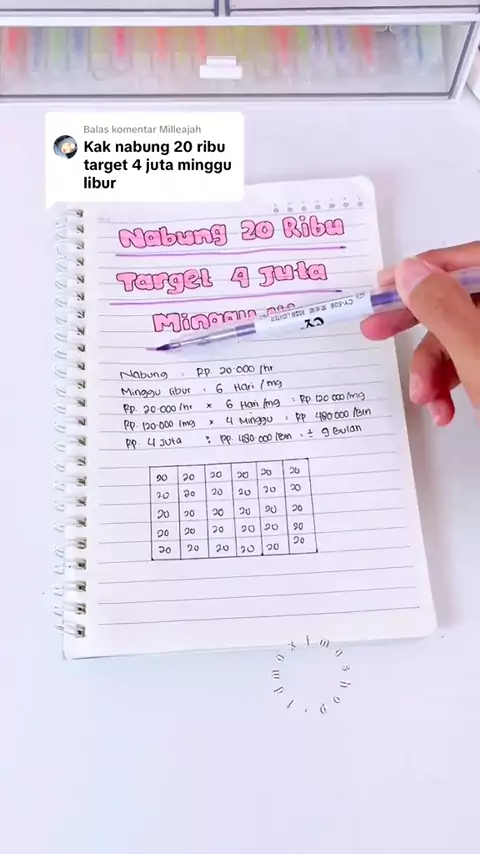 Balas komentar Milleajah
Kak nabung 20 ribu
target 4 juta minggu
libur
Nabung 20 Ribu
Target 4 Juta
Minggu
CY-506 HIGH LIGHTER
CY
Nabung : Rp. 20.000/hr
Minggu libur : 6 Hari/mg
Rp. 20.000/hr x 6 Hari/mg = Rp 120.000/mg
Rp. 120.000/mg x 4 Minggu = Rp 480.000/Bln
Rp. 4 Juta : Rp. 480.000/Bln = ± 9 Bulan
20 20 20 20 20 20
20 20 20 20 20 20
20 20 20 20 20 20
20 20 20 20 20 20
20 20 20 20 20 20